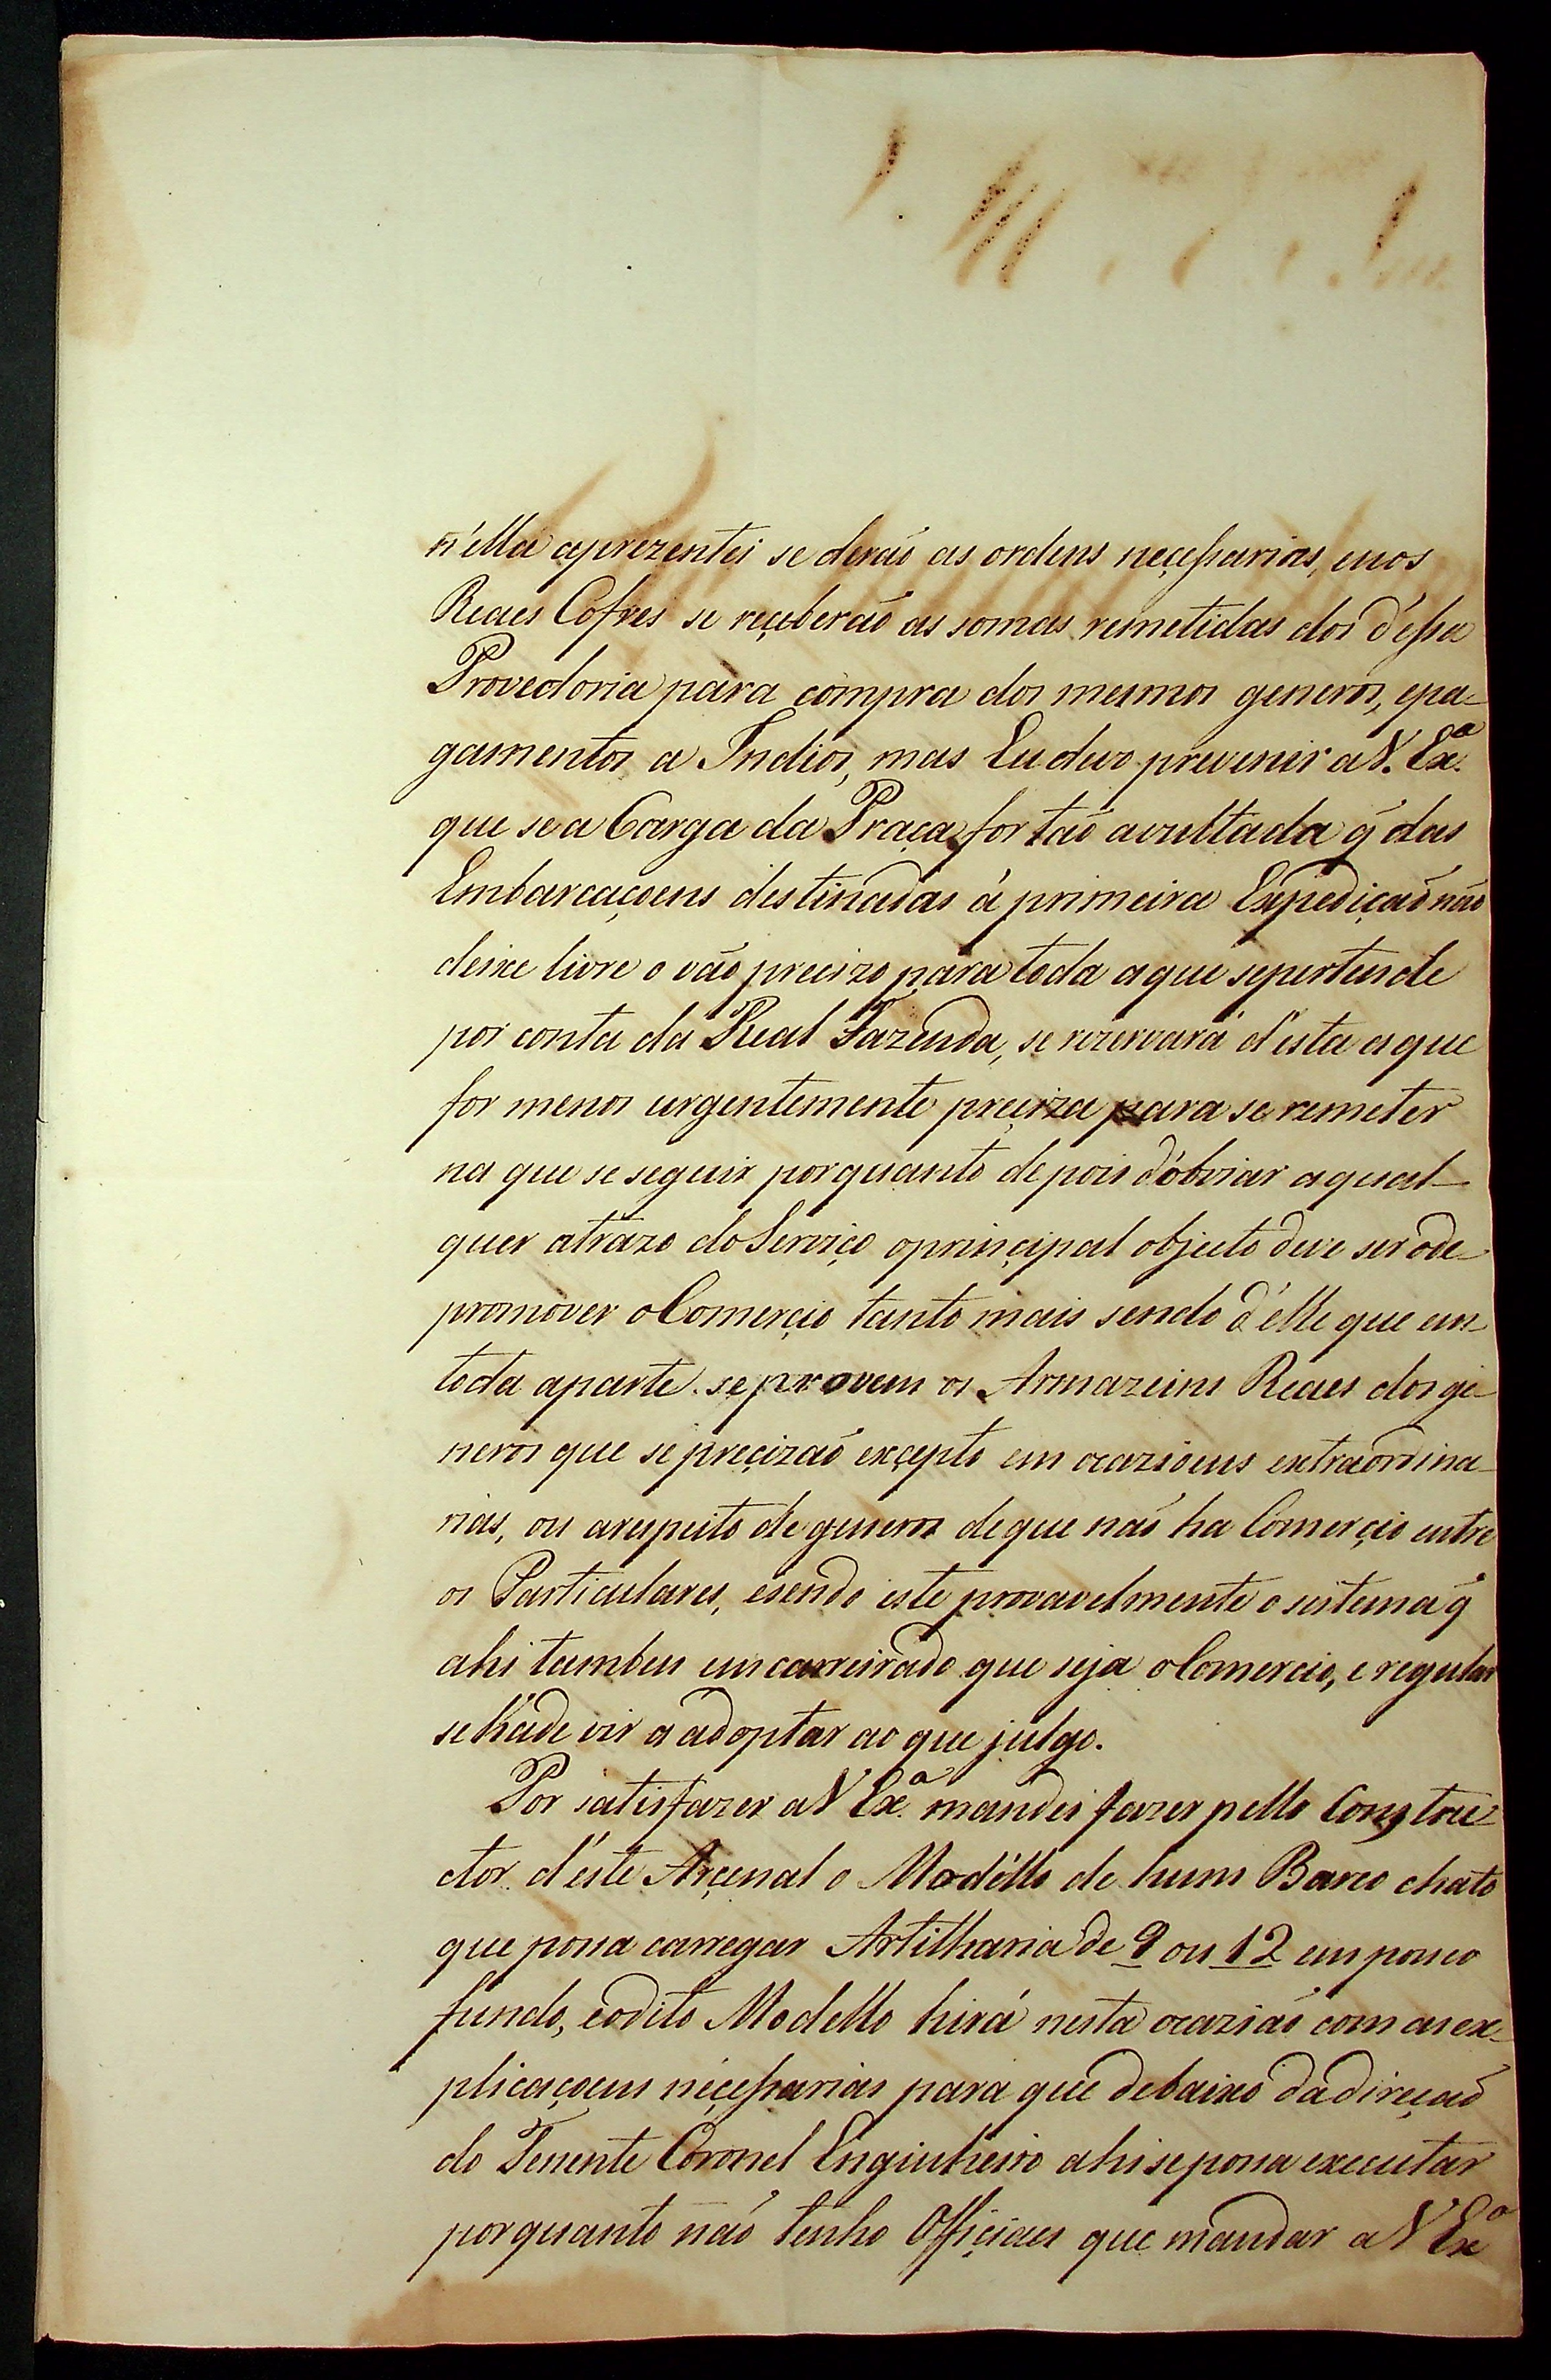 n'ella aprezentei se derão as ordens neçeſsarias, enos
Reaes Cofres se reçeberão as somas remetidas dos d'eſsa
Provedoria para compra dos mesmos generos, epa-
gamentos a Indios, mas Eu devo prevenir a V. Exª.
que se a Carga da Praça for tão avultada q̃ das
Embarcaçoens destinadas á primeira Expedição não
deixe livre o vão precizo para toda a que se pertende
por conta da Real Fazenda, se rezervará d'esta a que
for menos urgentemente preçiza para se remeter
na que se seguir por quanto depois d'obviar a qual-
quer atrazo do Serviço o prinçipal objecto deve ser o de
promover o Comerçio tanto mais sendo d'elle que em
toda a parte se provem os Armazeins Reaes dos ge
neros que se preçizão exçepto em ocazioens extraordina-
rias, ou a respeito de generos de que não ha Comerçio entre
os Particulares, e sendo este provavelmente o sistema q̃
ahi tambem encarreirado que seja o Comercio, e regular
se háde vir a adoptar ao que julgo.
Por satisfazer a V Exª. mandei fazer pello Constru-
ctor d'este Arçenal o Modéllo de hum Barco chato
que possa carregar Artilharia de 9 ou 12 em pouco
fundo, e o dito Modello hirá nesta ocazião com as ex-
plicaçoens neçeſsarias para que debaixo da direção
do Tenente Coronel Enginheiro ahi se possa executar
por quanto não tenho Offiçiaes que mandar a V Exª